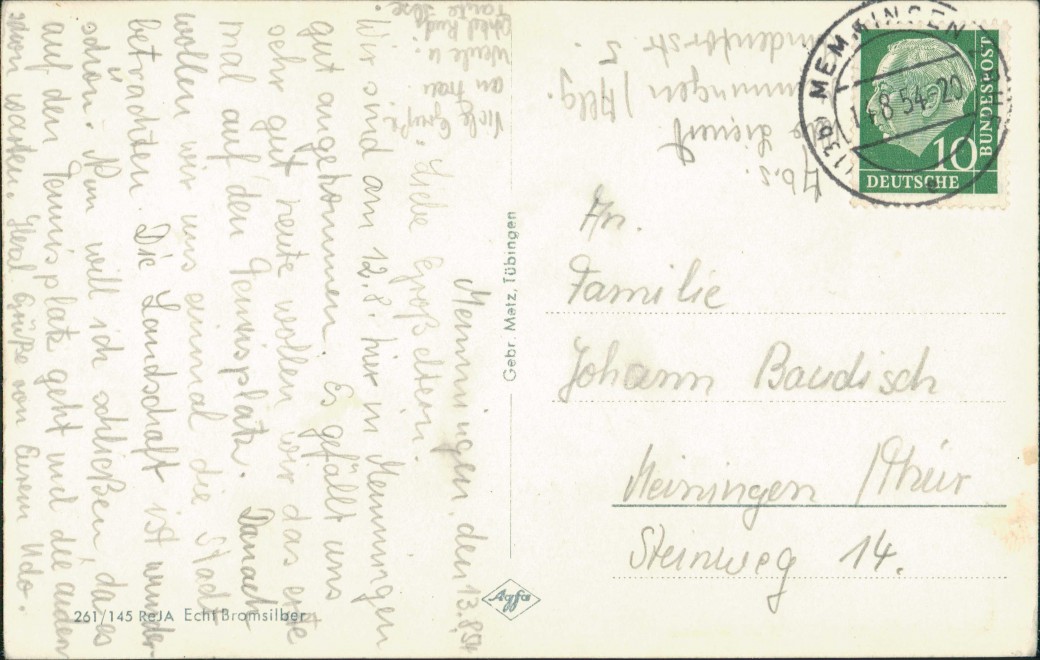 Memmingen, den 13.8.54
Liebe Großeltern.
Wir sind am 12.8. hier in Memmingen
gut angekommen. Es gefällt uns
sehr gut heute wollen wir das erste
mal auf den Tennisplatz. Danach
wollen wir uns einmal die Stadt
betrachten. Die Landschaft ist wunder-
schön. Nun will ich schließen, da es
auf den Tennisplatz geht und die anderen
schon warten. Herzl Grüße von Eurem Udo.
Viele Grüße
an Frau
u.
Onkel Rudi
Tante Ilse.
Abs.:
Memmingen /Allg.
5.
An.
Familie
Johann Baudisch
Meiningen /Thür
Steinweg 14.
Gebr. Metz, Tübingen
Agfa
261/145 ReJA Echt Bromsilber
(13b) MEMMINGEN
14.8.54-20
10
DEUTSCHE
BUNDESPOST